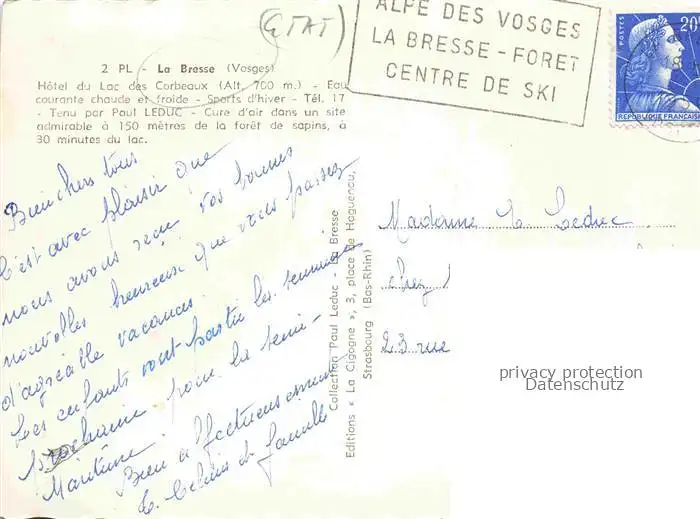 (ETAT)
ALPE DES VOSGES
LA BRESSE-FORET
CENTRE DE SKI
POSTES
20F
18
REPUBLIQUE FRANÇAISE
2 PL - La Bresse (Vosges)
Hôtel du Lac des Corbeaux (Alt. 700 m.) - Eau
courante chaude et froide - Sports d'hiver - Tél. 17
- Tenu par Paul LEDUC - Cure d'air dans un site
admirable à 150 mètres de la forêt de sapins, à
30 minutes du lac.
Bien chers tous
C'est avec plaisir que
nous avons reçu vos bonnes
nouvelles heureux que vous passez
d'agréable vacances.
Les enfants vont partir la semaine
prochaine pour la Seine-
Maritime.
Bien affectueusement
et famille
Collection Paul Leduc, La Bresse
Editions « La Cigogne », 3, place de Haguenau,
Strasbourg (Bas-Rhin)
Madame E Leduc
chez
23 rue
privacy protection
Datenschutz